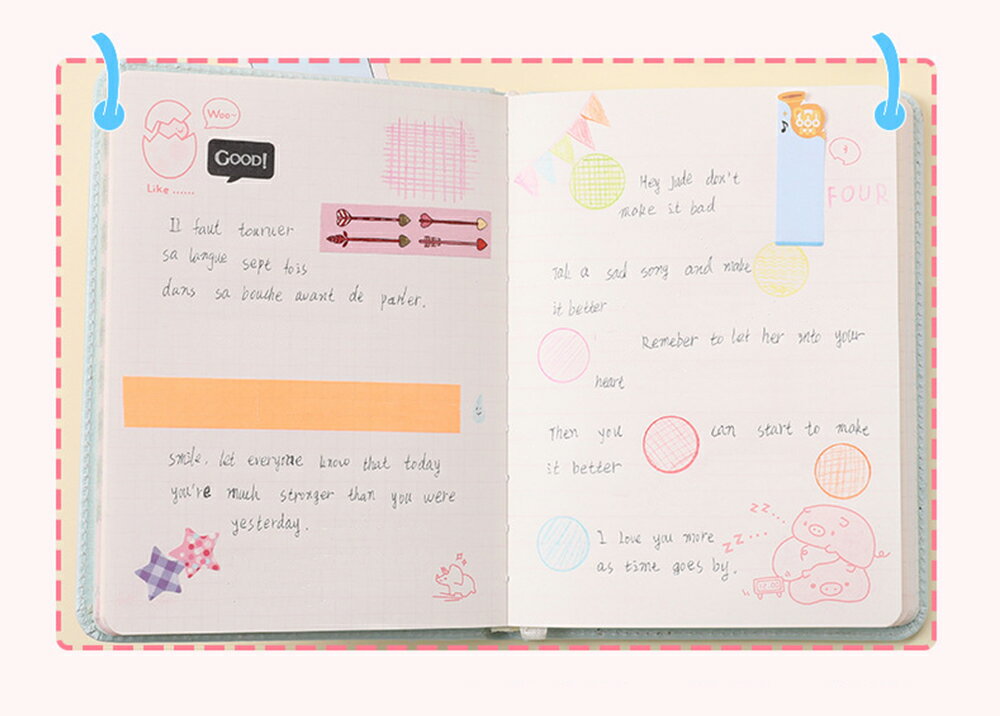 Woo~
GOOD!
Like ......
Il faut tourner
sa langue sept fois
dans sa bouche avant de parler.
smile, let everyone know that today
you're much stronger than you were
yesterday.
FOUR
Hey Jude don't
make it bad
Tak a sad song and make
it better
Remeber to let her into your
heart
Then you can start to make
it better
I love you more
as time goes by.
zz...
zz...